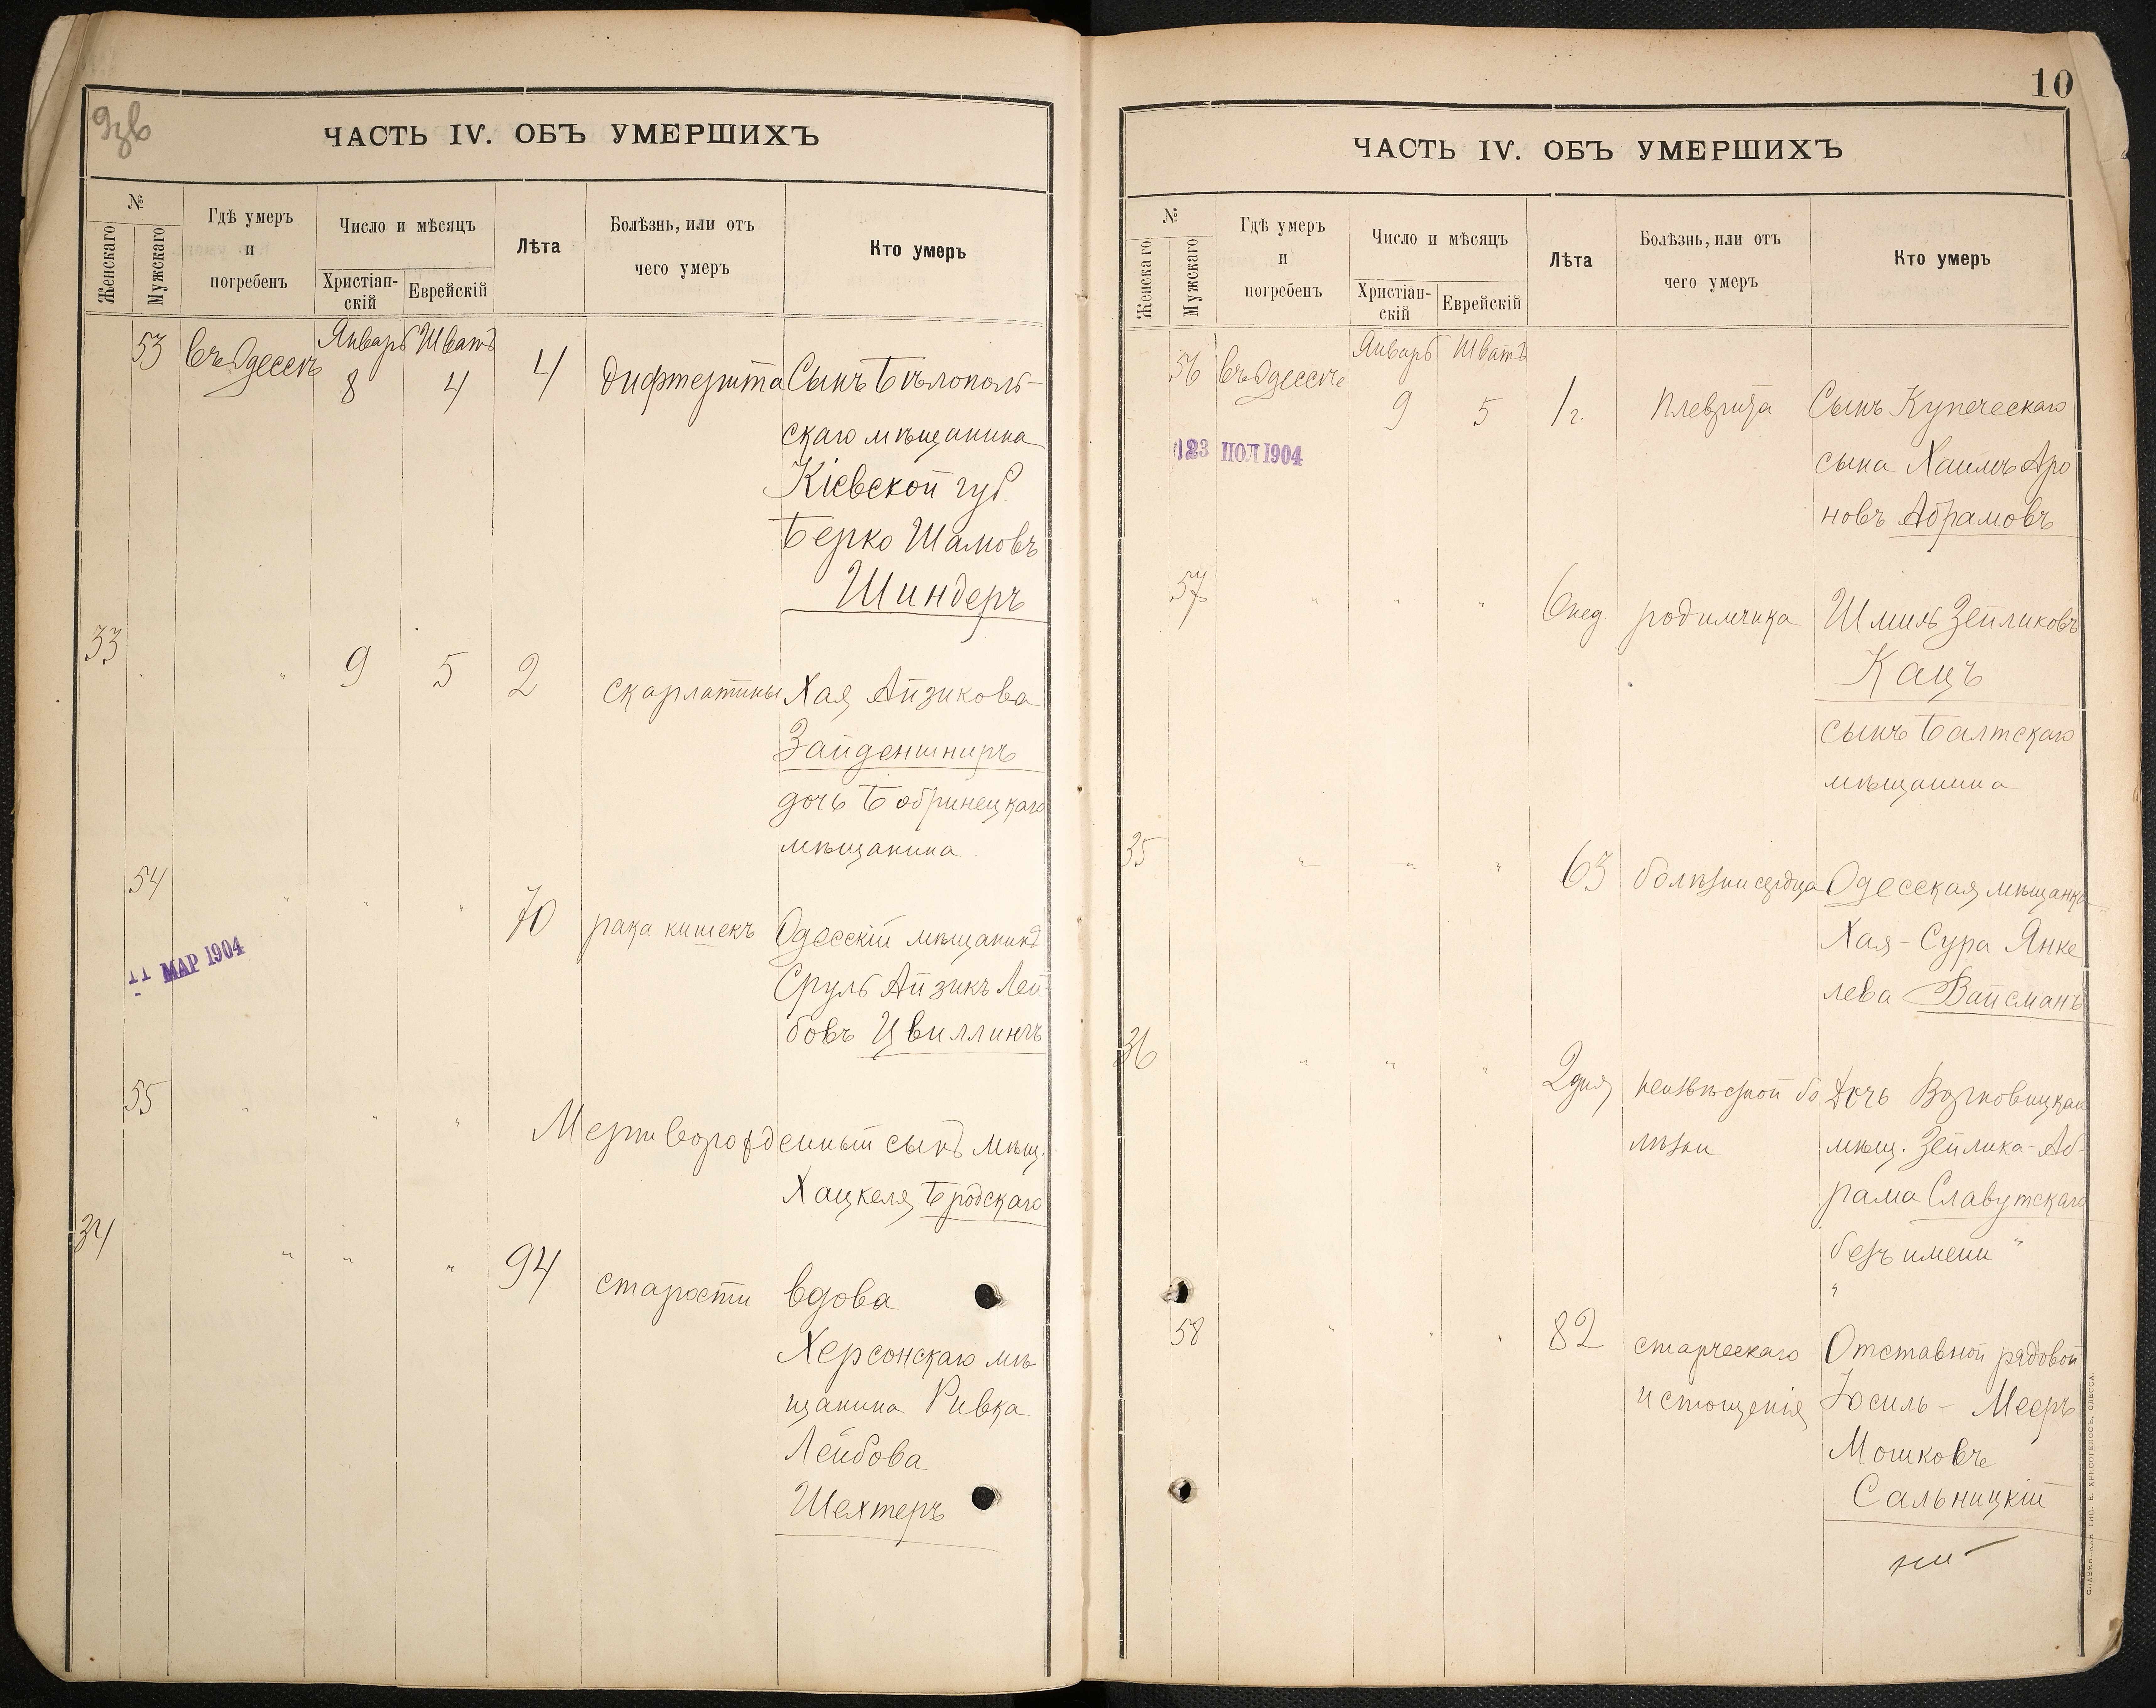 9 зв
ЧАСТЬ IV. ОБЪ УМЕРШИХЪ
№
Женскаго
Мужскаго
Гдѣ умеръ
и
погребенъ
Число и мѣсяцъ
Христіан-
скій
Еврейскій
Лѣта
Болѣзнь, или отъ
чего умеръ
Кто умеръ
53 въ Одессѣ Январь 8 Шватъ 4 4 дифтерита Сынъ Бѣлополь-
скаго мѣщанина
Кіевской губ.
Берко Шамовъ
Шиндеръ
33 " 9 5 2 скарлатины Хая Айзикова
Зайденшниръ
дочь Бобринецкаго
мѣщанина
54 " " " 70 рака кишекъ Одесскій мѣщанинъ
Сруль Айзикъ Лей
бовъ Цвиллингъ
11 МАР 1904
55 " " " Мертворожденный сынъ мѣщ.
Хацкеля Бродскаго
34 " " " 94 старости вдова
Херсонскаго мѣ-
щанина Ривка
Лейбова
Шехтеръ
10
ЧАСТЬ IV. ОБЪ УМЕРШИХЪ
№
Женскаго
Мужскаго
Гдѣ умеръ
и
погребенъ
Число и мѣсяцъ
Христіан-
скій
Еврейскій
Лѣта
Болѣзнь, или отъ
чего умеръ
Кто умеръ
56 въ Одессѣ Январь 9 Шватъ 5 1 г. плеврита Сынъ Купеческаго
сына Хаимъ Аро
новъ Абрамовъ
23 ПОЛ 1904
57 " " " 6 нед. родимчика Шмиль Зейликовъ
Кацъ
сынъ Балтскаго
мѣщанина
35 " " " 63 болѣзни сердца Одесская мѣщанка
Хая-Сура Янке
лева Вайсманъ
36 " " " 2 дня неизвѣстной бо Дочь
лѣзни мѣщ. Зейлика-Аб-
рама Славутскаго
безъ имени "
"
58 " " " 82 старческаго Отставной рядовой
истощенія Юсиль - Мееръ
Мошковъ
Сальницкій
СЛАВЯНСКАЯ ТИП. Е. ХРИСОГЕЛОСЪ, ОДЕССА.